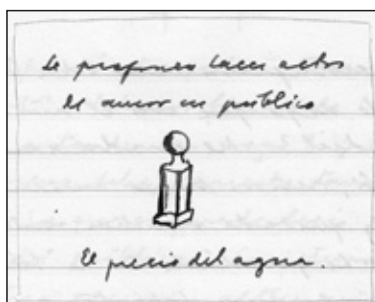 Se profanan hacen actos
de amor en público
El precio del agua.